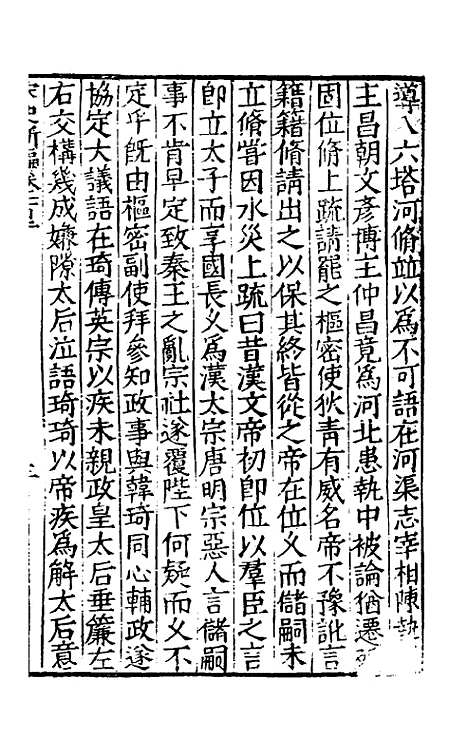 導入六塔河脩並以爲不可語在河渠志宰相陳執
主昌朝文彥博主仲昌竟爲河北患執中被論猶遷
固位脩上疏請罷之樞密使狄青有威名帝不豫訛言
籍籍脩請出之以保其終皆從之帝在位乆而儲嗣未
立脩嘗因水災上疏曰昔漢文帝初卽位以羣臣之言
卽立太子而享國長乆爲漢太宗唐明宗惡人言儲嗣
事不肯早定致秦王之亂宗社遂覆陛下何疑而乆不
定乎旣由樞密副使拜參知政事與韓琦同心輔政遂
協定大議語在琦傳英宗以疾未親政皇太后垂簾左
右交構幾成嫌隙太后泣語琦琦以帝疾爲解太后意
宋史新編卷
三